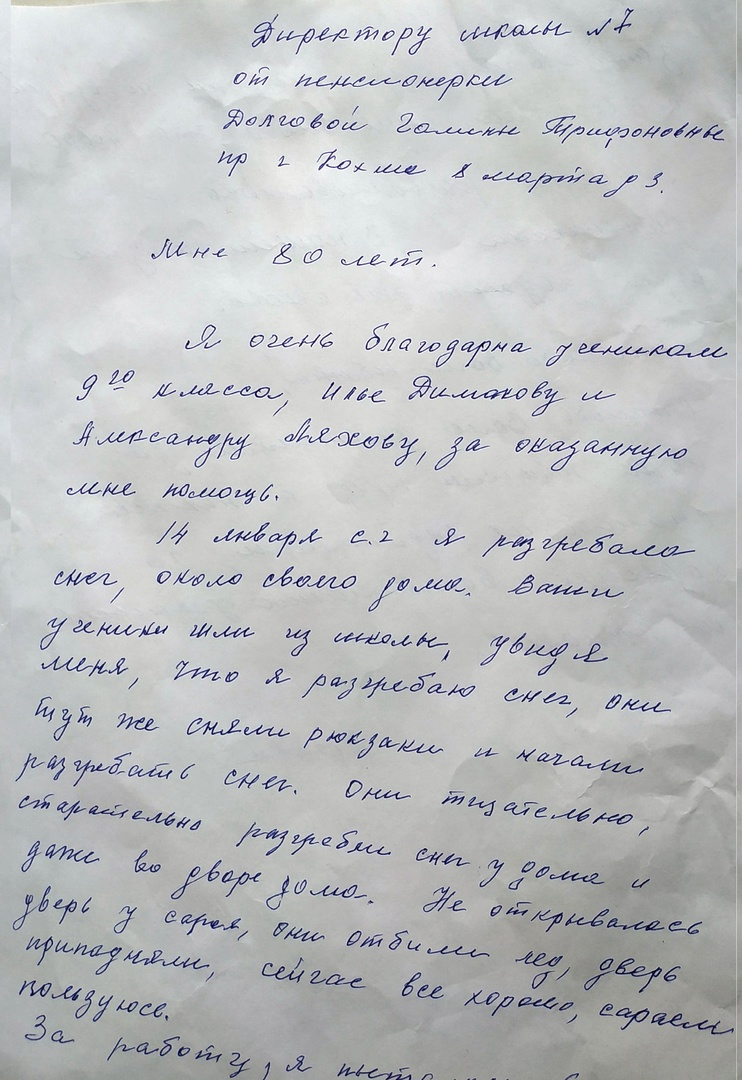 Директору школы №7
от пенсионерки
Долговой Галины Трифоновны
пр г Кохма 8 марта д 3.
Мне 80 лет.
Я очень благодарна ученикам
9го класса, Илье Димакову и
Александру Ляхову, за оказанную
мне помощь.
14 января с.г я разгребала
снег, около своего дома. Ваши
ученики шли из школы, увидя
меня, что я разгребаю снег, они
тут же сняли рюкзаки и начали
разгребать снег. Они тщательно,
старательно разгребли снег у дома и
даже во дворе дома. Не открывалась
дверь у сарая, они отбили лед, дверь
приподняли, сейчас все хорошо, сараем
пользуюсь.
За работу, я